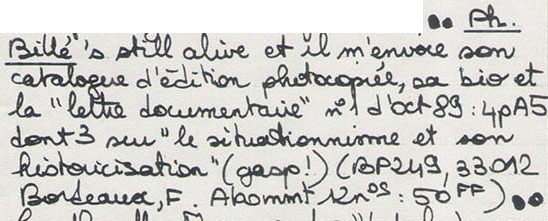 ●● Ph.
Billé's still alive et il m'envoie son
catalogue d'édition photocopiée, sa bio et
la "lettre documentaire" n°1 d'oct 89 : 4pA5
dont 3 sur "le situationnisme et son
historicisation" (gasp!) (BP249, 33012
Bordeaux, F. Abommt 12 nos : 50FF) ●●